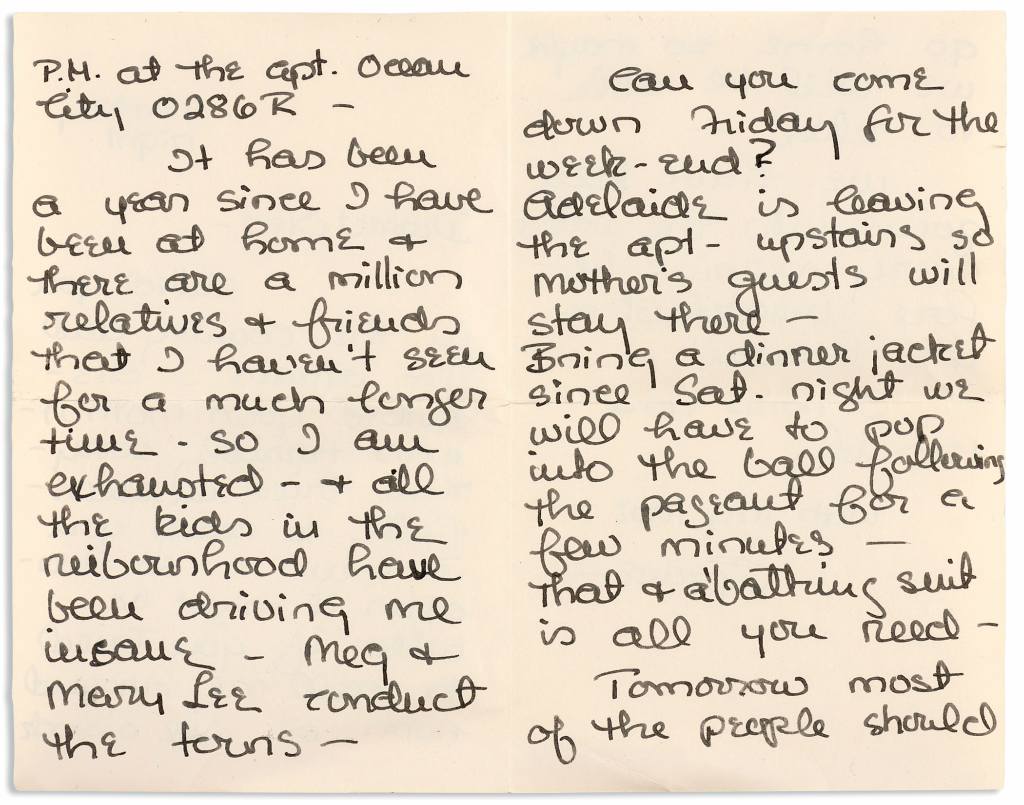 P.M. at the apt. Ocean
City 0286R —
It has been
a year since I have
been at home &
there are a million
relatives & friends
that I haven't seen
for a much longer
time - so I am
exhausted - & all
the kids in the
neibourhood have
been driving me
insane - Meg &
Mary Lee conduct
the torns —
Can you come
down Friday for the
week-end?
Adelaide is leaving
the apt - upstairs so
mother's guests will
stay there —
Bring a dinner jacket
since Sat. night we
will have to pop
into the ball following
the pageant for a
few minutes —
that & a bathing suit
is all you need -
Tomorrow most
of the people should